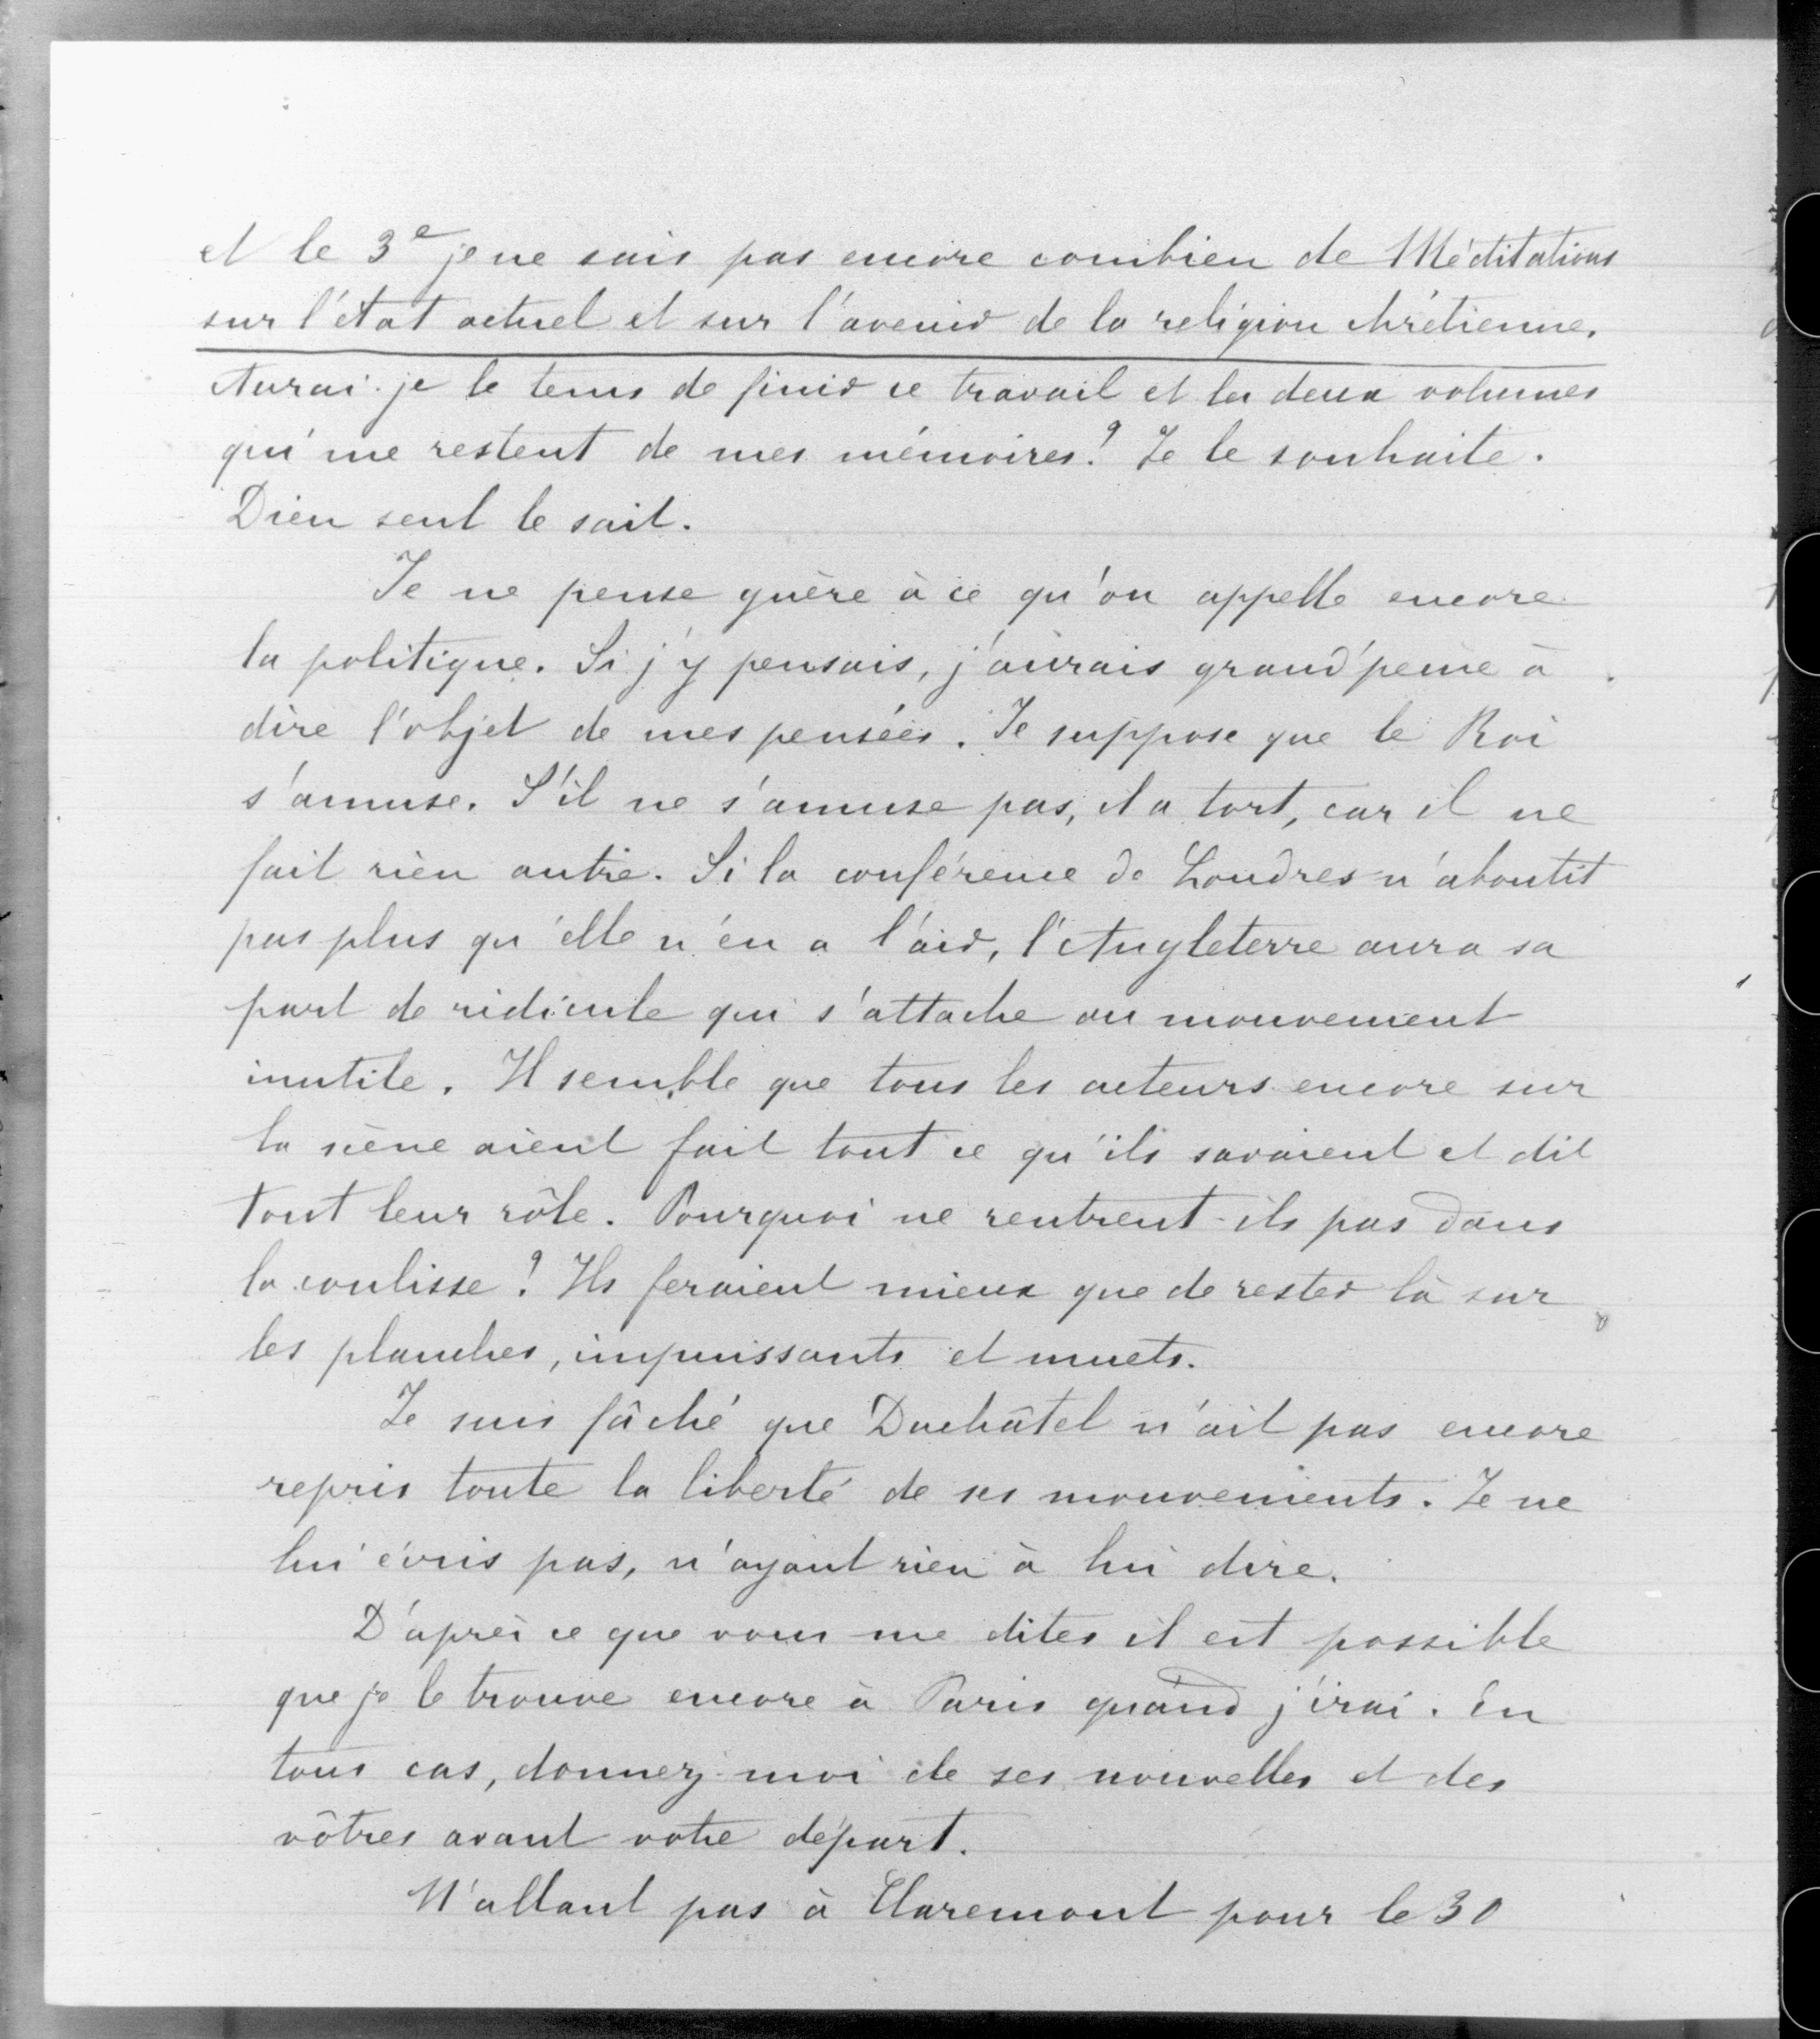 et le 3e je ne sais pas encore combien de Méditations
sur l'état actuel et sur l'avenir de la religion chrétienne.
Aurai-je le tems de finir ce travail et les deux volumes
qui me restent de mes mémoires? Je le souhaite.
Dieu seul le sait.
Je ne pense guère à ce qu'on appelle encore
la politique. Si j'y pensais, j'aurais grand'peine à
dire l'objet de mes pensées. Je suppose que le Roi
s'amuse. S'il ne s'amuse pas, il a tort, car il ne
fait rien autre. Si la conférence de Londres n'aboutit
pas plus qu'elle n'en a l'air, l'Angleterre aura sa
part de ridicule qui s'attache au mouvement
inutile. Il semble que tous les acteurs encore sur
la scène aient fait tout ce qu'ils savaient et dit
tout leur rôle. Pourquoi ne rentrent-ils pas dans
la coulisse? Ils feraient mieux que de rester là sur
les planches, impuissants et muets.
Je suis fâché que Duchâtel n'ait pas encore
repris toute la liberté de ses mouvements. Je ne
lui écris pas, n'ayant rien à lui dire.
D'après ce que vous me dites il est possible
que je le trouve encore à Paris quand j'irai. En
tous cas, donnez-moi de ses nouvelles et des
vôtres avant votre départ.
N'allant pas à Claremont pour le 30